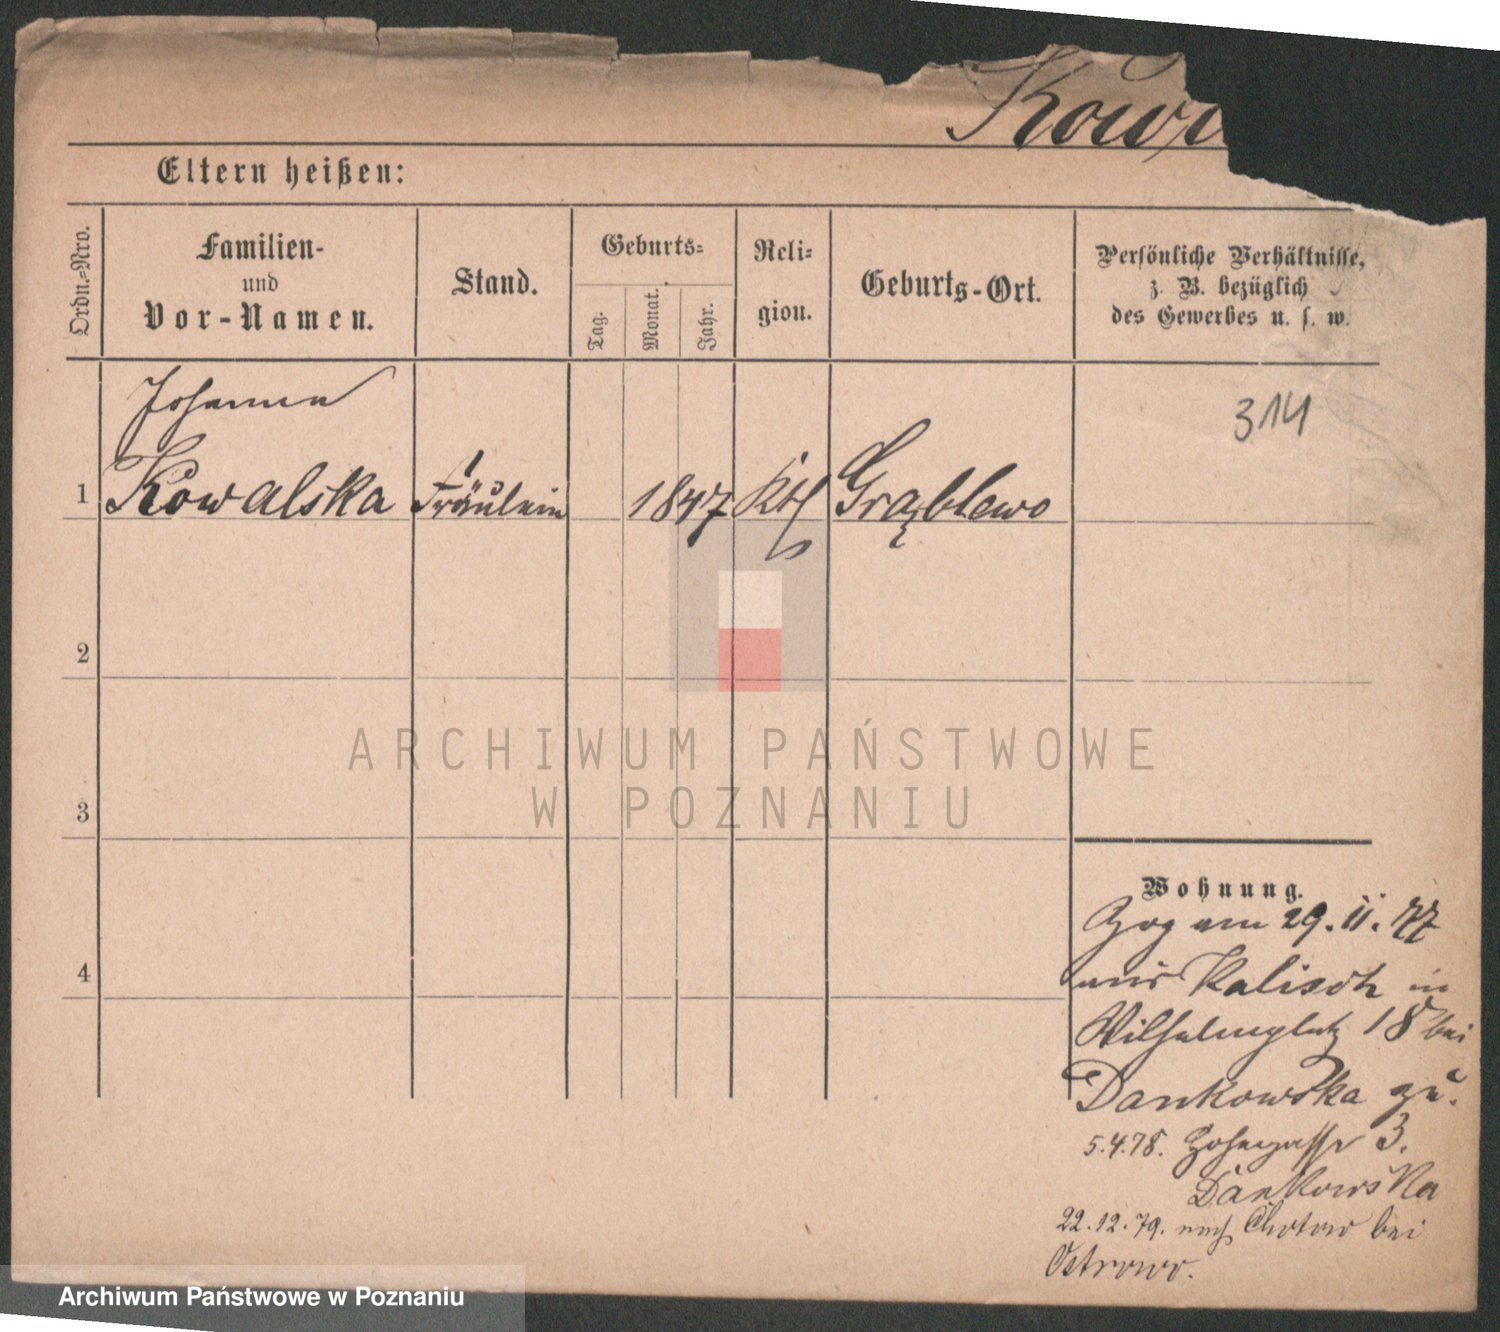 Kowa
Eltern heißen:
Ordn.-Nro.
Familien-
und
Vor-Namen.
Stand.
Geburts-
Tag.
Monat.
Jahr.
Reli-
gion.
Geburts-Ort.
Persönliche Verhältnisse,
z. B. bezüglich
des Gewerbes u. s. w.
Johanna
314
1 Kowalska Fräulein 1847 Kth Grąblewo
2
3
4
ARCHIWUM PAŃSTWOWE
W POZNANIU
Wohnung.
Zog am 29. 11. 77
aus Kalisch in
Wilhelmsplatz 18 bei
Dankowska zu.
5.4.78. Hohegasse 3.
Dankowska
22.12.79. nach Chotow bei
Ostrowo.
Archiwum Państwowe w Poznaniu